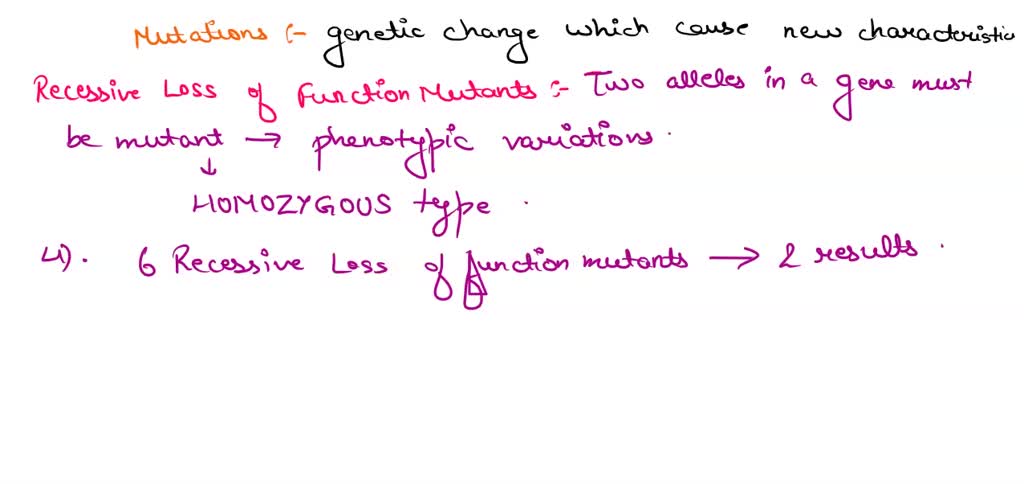 Mutations :- genetic change which cause new characteristic
Recessive Loss of Function Mutants :- Two alleles in a gene must
be mutant → phenotypic variations.
↓
HOMOZYGOUS type.
4). 6 Recessive Loss of function mutants → 2 results.